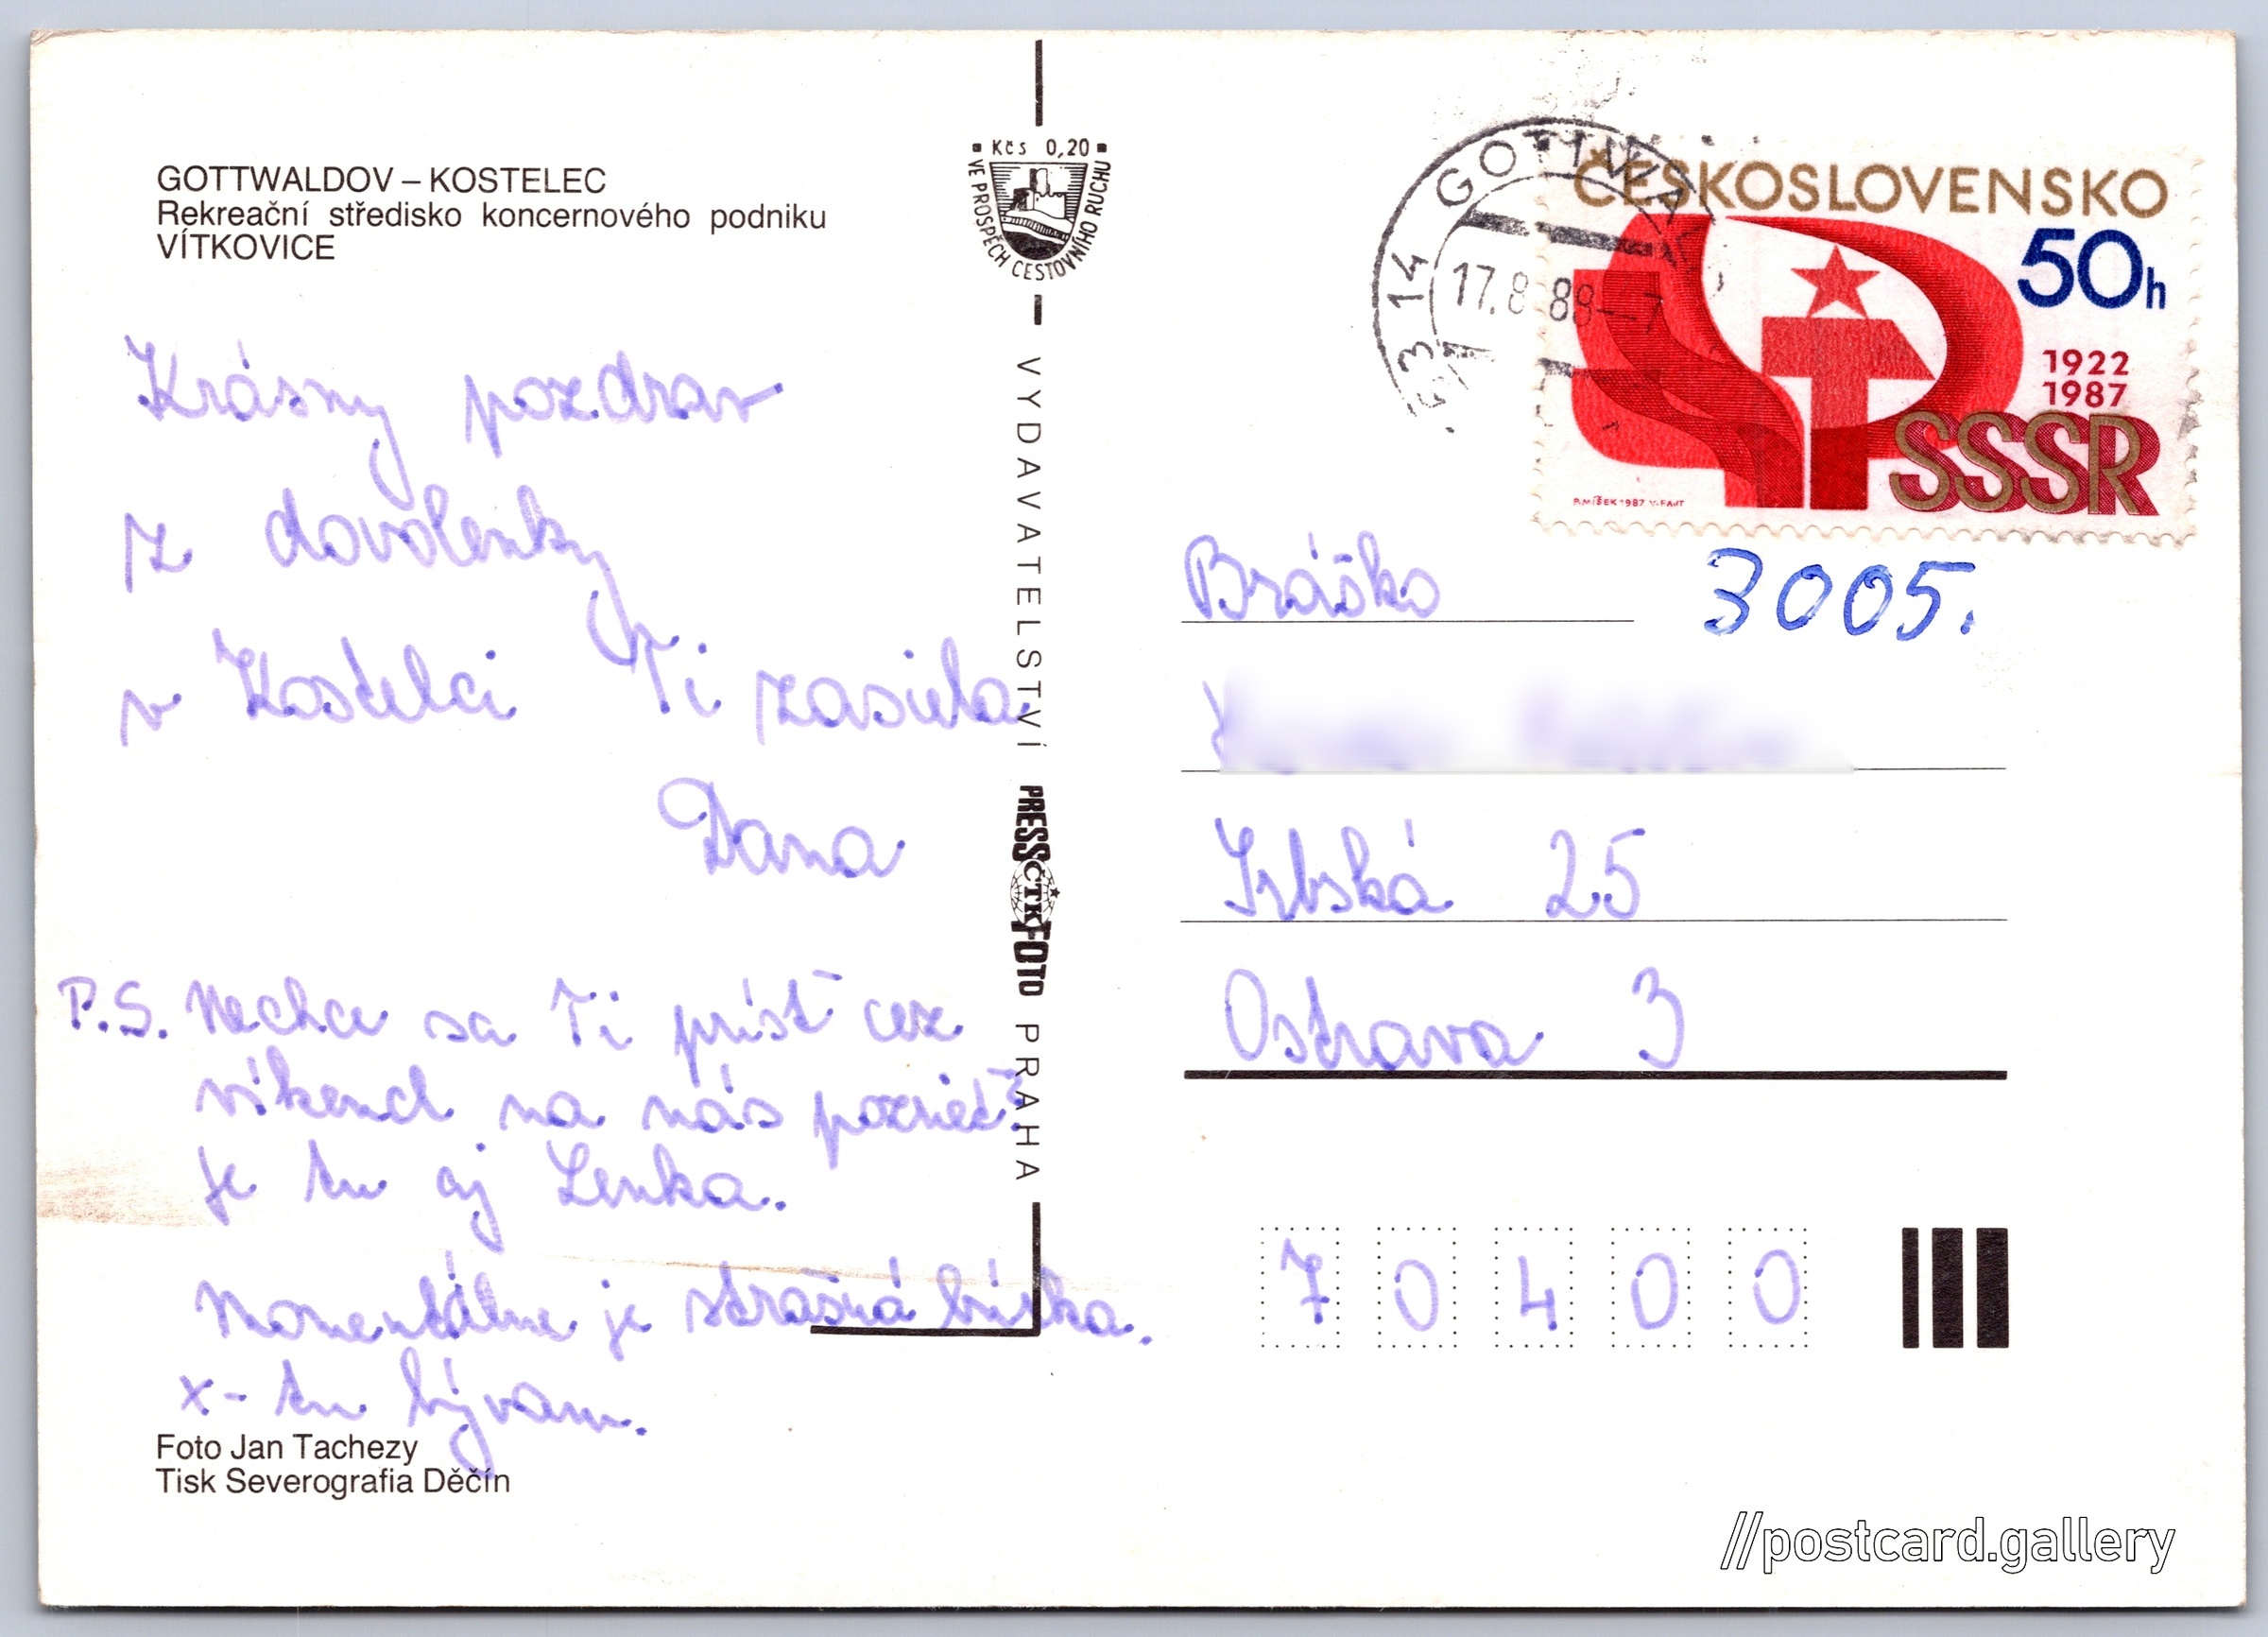 GOTTWALDOV – KOSTELEC
Rekreační středisko koncernového podniku
VÍTKOVICE
Krásny pozdrav
z dovolenky
v Kostelci Ti zasiela
Dana
P.S. Nechce sa Ti prísť cez
víkend na nás pozrieť?
Je tu aj Lenka.
Momentálne je strašná búrka.
x- tu bývam.
Foto Jan Tachezy
Tisk Severografia Děčín
Kčs 0,20
VE PROSPĚCH CESTOVNÍHO RUCHU
VYDAVATELSTVÍ PRESSFOTO PRAHA
ČTK
14 GOTTWAL
17.8.88--7
ČESKOSLOVENSKO
50h
1922
1987
SSSR
P.MÍŠEK 1987 V.FAJT
Bráško
3005.
Srbská 25
Ostrava 3
70400
//postcard.gallery